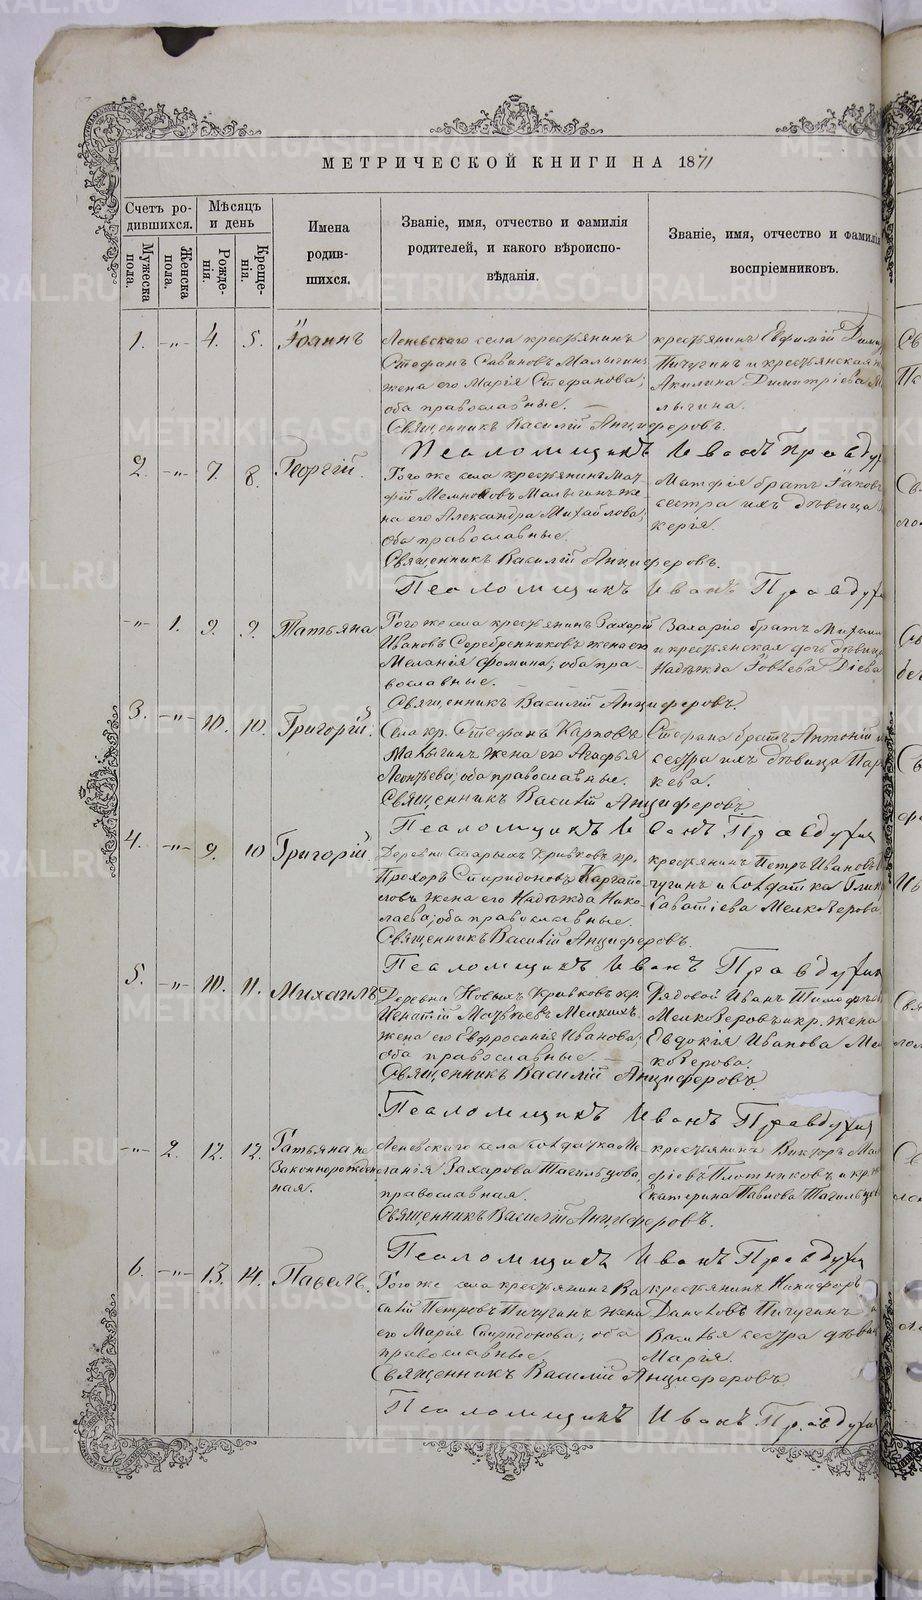 МЕТРИЧЕСКОЙ КНИГИ НА 1871
Счетъ ро-
дившихся.
Мужеска
пола.
Женска
пола.
Мѣсяцъ
и день
Рожде-
нія.
Креще-
нія.
Имена
родив-
шихся.
Званіе, имя, отчество и фамилія
родителей, и какого вѣроиспо-
вѣданія.
Званіе, имя, отчество и фамилія
воспріемниковъ.
1. -„- 4. 5. Іоаннъ
Леневскаго села крестьянинъ
Стефанъ Савиновъ Малыгинъ
жена его Марія Стефанова;
оба православные.
крестьянинъ Евфимій
Пичугинъ и крестьянская
Акилина Димитріева
лыгина.
Священникъ Василій Анциферовъ.
Псаломщикъ Иванъ Правду
2. -„- 7. 8. Георгій.
Того же села крестьянинъ Мат-
фій Мемноновъ Малыгинъ же-
на его Александра Михайлова;
оба православные.
Матфія братъ Іаковъ
сестра ихъ дѣвица
керія.
Священникъ Василій Анциферовъ.
Псаломщикъ Иванъ Правду
-„- 1. 9. 9. Татьяна
Того же села крестьянинъ Захарій
Ивановъ Серебренниковъ жена его
Меланія Фомина; оба пра-
вославные.
Захарія братъ Михаил
и крестьянская дочь дѣвица
Надежда Іовлева Діева
Священникъ Василій Анциферовъ.
3. -„- 10. 10. Григорій.
Села кр. Стефанъ Карповъ
Малыгинъ жена его Агафья
Леонтьева; оба православные.
Стефана братъ Антоній и
сестра ихъ дѣвица Пар
кева.
Священникъ Василій Анциферовъ
Псаломщикъ Иванъ Правдухин
4. -„- 9. 10 Григорій.
Деревни Старыхъ Кривковъ кр.
Прохоръ Спиридоновъ Каргапо-
ловъ жена его Надежда Нико-
лаева; оба православные.
крестьянинъ Петръ Ивановъ
чугинъ и солдатка
Саватіева Мелкозерова
Священникъ Василій Анциферовъ.
Псаломщикъ Иванъ Правдухин
5. -„- 10. 11. Михаилъ
Деревни Новыхъ Кривковъ кр.
Игнатій Матвѣевъ Мелкихъ,
жена его Евфросинія Иванова;
оба православные.
Рядовой Иванъ Тимофѣев
Мелкозеровъ и кр. жена
Евдокія Иванова Мел
козерова.
Священникъ Василій Анциферовъ.
Псаломщикъ Иванъ Правдухин
-„- 2. 12. 12. Татьяна не
законнорожден-
ная.
Леневскаго села солдатка Ме-
ланія Захарова Тагильцова,
православная.
крестьянинъ Викторъ Мат
фіевъ Плотниковъ и кр.
Екатерина Павлова Тагильцов
Священникъ Василій Анциферовъ.
Псаломщикъ Иванъ Правдухи
6. -„- 13. 14. Павелъ.
Того же села крестьянинъ Ва-
силій Петровъ Пичугинъ жена
его Марія Спиридонова; оба
православные.
крестьянинъ Никифоръ
Даниловъ Пичугинъ и
Василья сестра дѣвица
Марія.
Священникъ Василій Анциферовъ
Псаломщикъ Иванъ Правдухи
METRIKI.GASO-URAL.RU